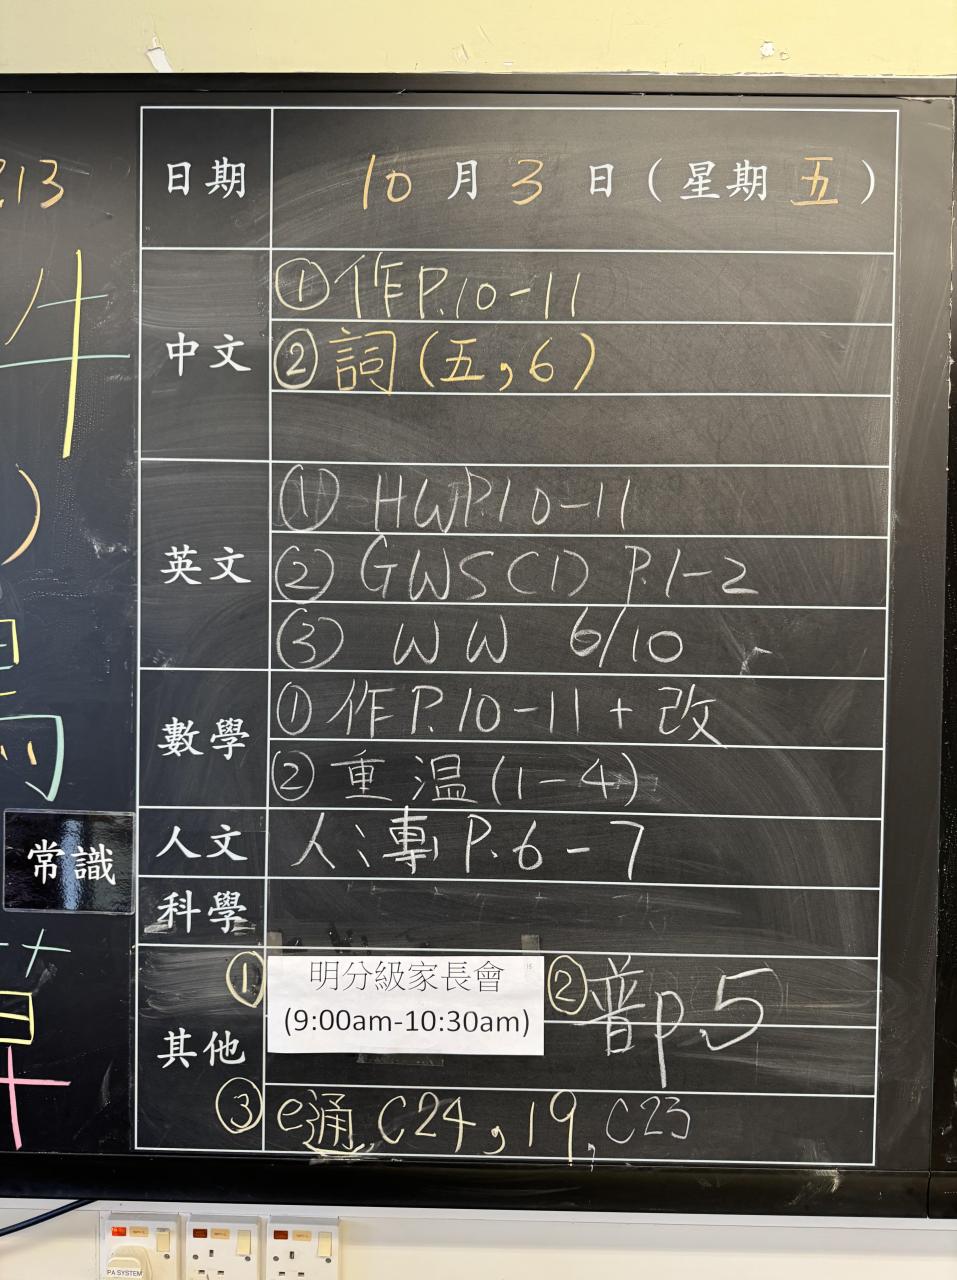 13
日期 10月3日(星期五)
中文
①作P.10-11
②詞(五,6)
英文
① HWP.10-11
② GWS(1) P.1-2
③ WW 6/10
數學
①作P.10-11+改
②重溫(1-4)
人文 人、專P.6-7
常識
科學
其他
① 明分級家長會
(9:00am-10:30am)
②普p.5
③ e通 C24, 19, C23
PA SYSTEM